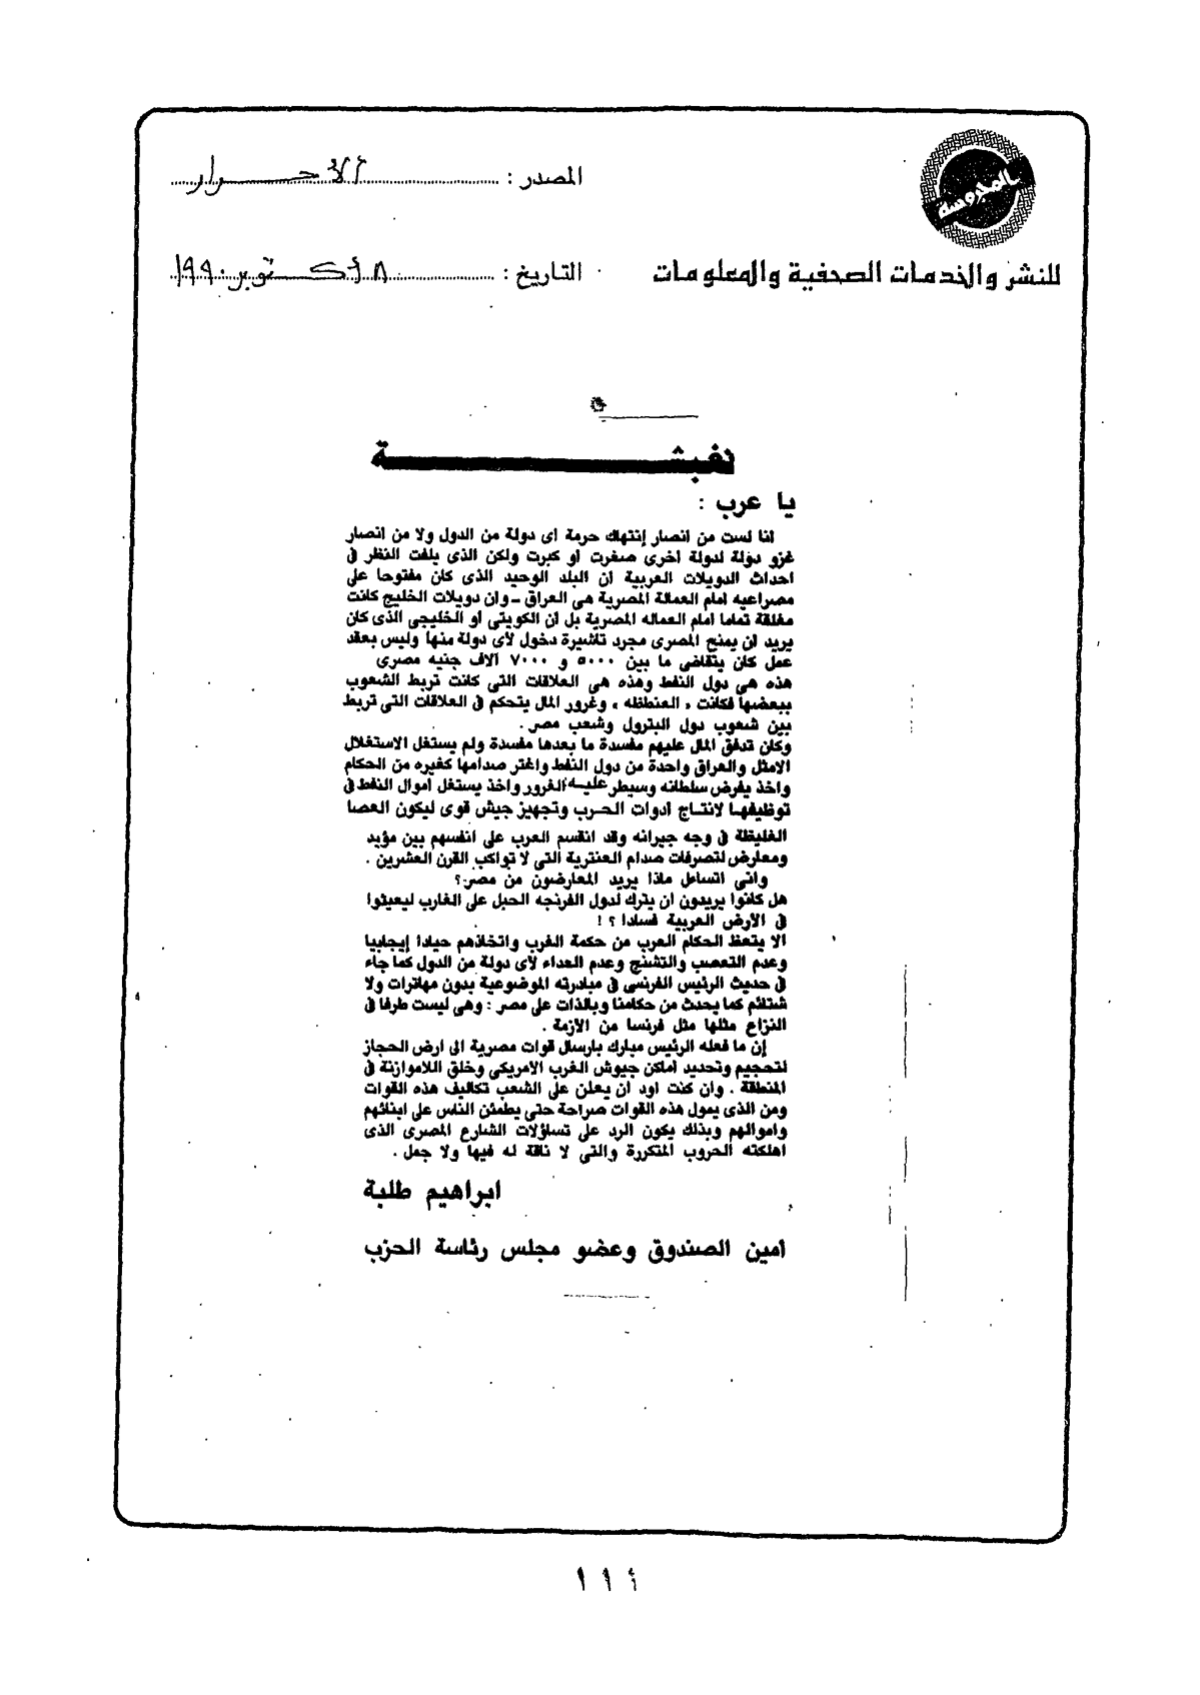 المحروسة
المصدر : الأحرار
للنشر والخدمات الصحفية والمعلومات
التاريخ : ٨ أكتوبر ١٩٩٠
نغبشة
يا عرب :
انا لست من انصار إنتهاك حرمة اى دولة من الدول ولا من انصار
غزو دولة لدولة اخرى صغرت او كبرت ولكن الذى يلفت النظر فى
احداث الدويلات العربية ان البلد الوحيد الذى كان مفتوحا على
مصراعيه امام العمالة المصرية هى العراق - وان دويلات الخليج كانت
مغلقة تماما امام العماله المصرية بل ان الكويتى او الخليجى الذى كان
يريد ان يمنح المصرى مجرد تاشيرة دخول لاى دولة منها وليس بعقد
عمل كان يتقاضى ما بين ٥٠٠٠ و ٧٠٠٠ آلاف جنيه مصرى
هذه هى دول النفط وهذه هى العلاقات التى كانت تربط الشعوب
ببعضها فكانت ، العنطظه ، وغرور المال يتحكم فى العلاقات التى تربط
بين شعوب دول البترول وشعب مصر .
وكان تدفق المال عليهم مفسدة ما بعدها مفسدة ولم يستغل الاستغلال
الامثل والعراق واحدة من دول النفط واغتر صدامها كغيره من الحكام
واخذ يفرض سلطانه وسيطر عليه الغرور واخذ يستغل اموال النفط فى
توظيفها لانتاج ادوات الحرب وتجهيز جيش قوى ليكون العصا
الغليظة فى وجه جيرانه وقد انقسم العرب على انفسهم بين مؤيد
ومعارض لتصرفات صدام العنترية التى لا تواكب القرن العشرين .
وانى اتساءل ماذا يريد المعارضون من مصر ؟
هل كانوا يريدون ان يترك لدول الفرنجه الحبل على الغارب ليعيثوا
فى الارض العربية فسادا ؟ !
الا يتعظ الحكام العرب من حكمة الغرب واتخاذهم حيادا إيجابيا
وعدم التعصب والتشنج وعدم العداء لاى دولة من الدول كما جاء
فى حديث الرئيس الفرنسى فى مبادرته الموضوعية بدون مهاترات ولا
شتائم كما يحدث من حكامنا وبالذات على مصر : وهى ليست طرفا فى
النزاع مثلها مثل فرنسا من الازمة .
إن ما فعله الرئيس مبارك بارسال قوات مصرية الى ارض الحجاز
لتحجيم وتحديد اماكن جيوش الغرب الامريكى وخلق اللاموازنة فى
المنطقة . وان كنت اود ان يعلن على الشعب تكاليف هذه القوات
ومن الذى يمول هذه القوات صراحة حتى يطمئن الناس على ابنائهم
واموالهم وبذلك يكون الرد على تساؤلات الشارع المصرى الذى
اهلكته الحروب المتكررة والتى لا ناقة له فيها ولا جمل .
ابراهيم طلبة
امين الصندوق وعضو مجلس رئاسة الحزب
١١٤